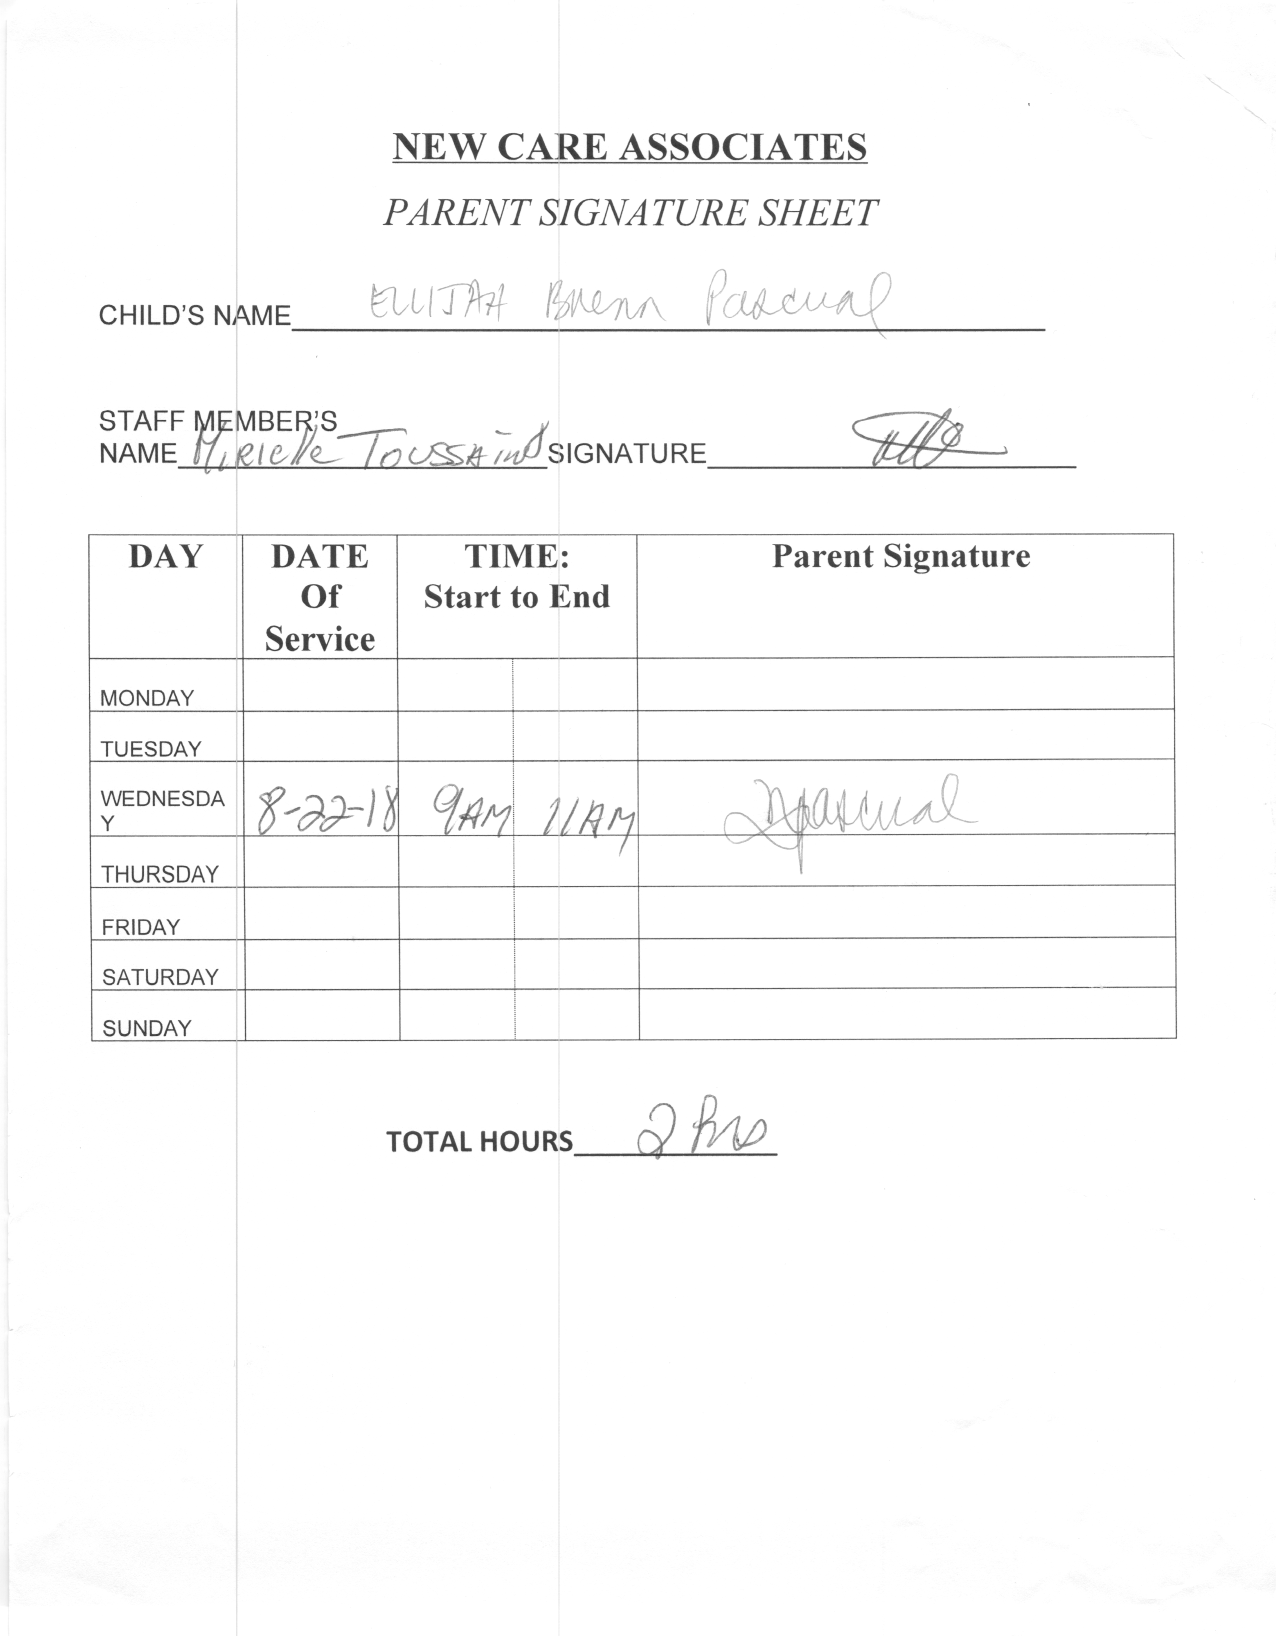 NEW CARE ASSOCIATES
PARENT SIGNATURE SHEET
CHILD'S NAME ELLIJAH Pascual
STAFF MEMBER'S
NAME Mirielle Toussaint SIGNATURE
DAY DATE Of Service TIME: Start to End Parent Signature
MONDAY
TUESDAY
WEDNESDAY 8-22-18 9AM 11AM pascual
THURSDAY
FRIDAY
SATURDAY
SUNDAY
TOTAL HOURS 2 hrs